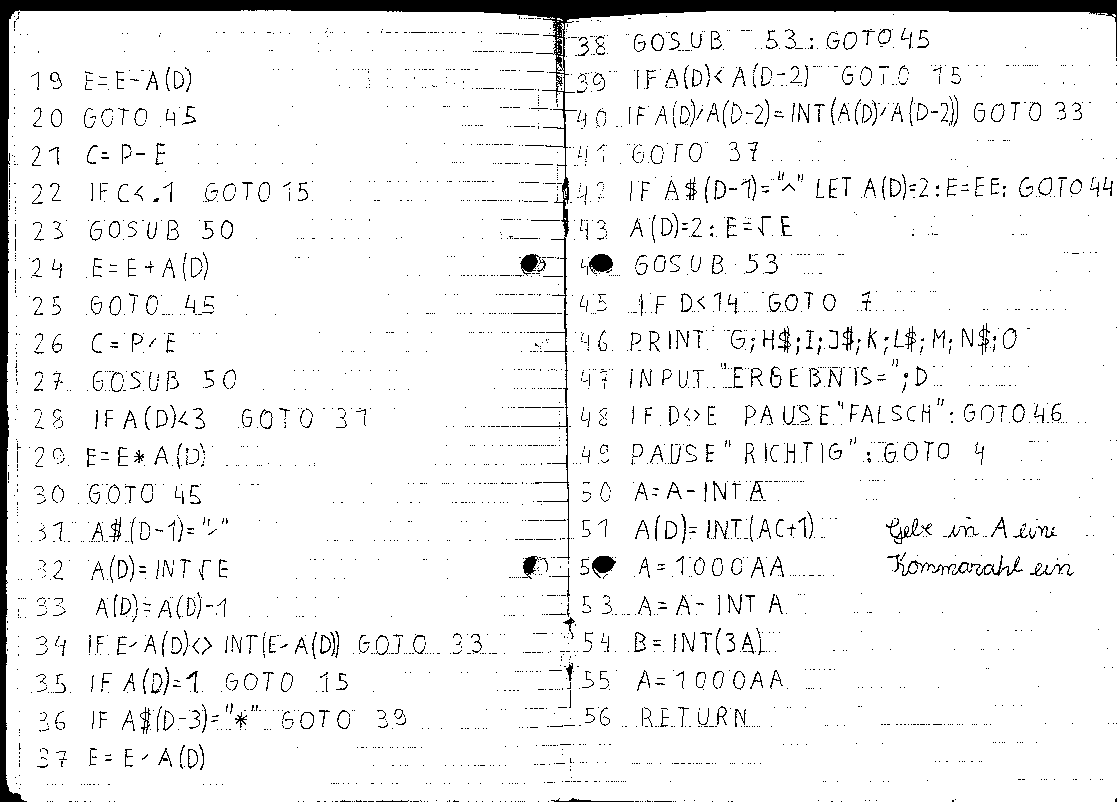 19 E=E-A(D)
20 GOTO 45
21 C=P-E
22 IF C<.1 GOTO 15
23 GOSUB 50
24 E=E+A(D)
25 GOTO 45
26 C=P/E
27 GOSUB 50
28 IF A(D)<3 GOTO 31
29 E=E*A(D)
30 GOTO 45
31 A$(D-1)="/"
32 A(D)=INT√E
33 A(D)=A(D)-1
34 IF E/A(D)<>INT(E/A(D)) GOTO 33
35 IF A(D)=1 GOTO 15
36 IF A$(D-3)="*" GOTO 39
37 E=E/A(D)
38 GOSUB 53:GOTO 45
39 IF A(D)<A(D-2) GOTO 15
40 IF A(D)/A(D-2)=INT(A(D)/A(D-2)) GOTO 33
41 GOTO 37
42 IF A$(D-1)="^" LET A(D)=2:E=EE: GOTO 44
43 A(D)=2: E=√E
4 GOSUB 53
45 IF D<14 GOTO 7
46 PRINT G;H$;I;J$;K;L$;M;N$;O
47 INPUT "ERGEBNIS=";D
48 IF D<>E PAUSE"FALSCH":GOTO 46
49 PAUSE"RICHTIG":GOTO 4
50 A=A-INT A
51 A(D)=INT(AC+1) Gebe in A eine
5 A=1000AA Kommazahl ein
53 A=A-INT A
54 B=INT(3A)
55 A=1000AA
56 RETURN